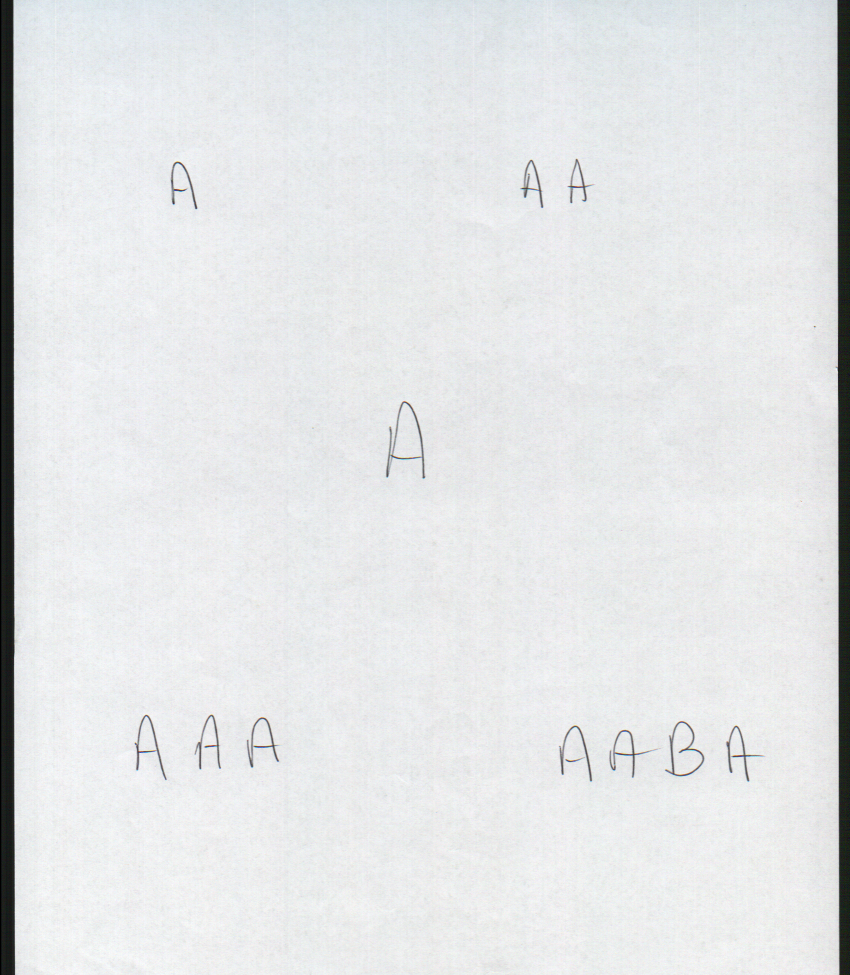 A A A
A
A A A
A A B A